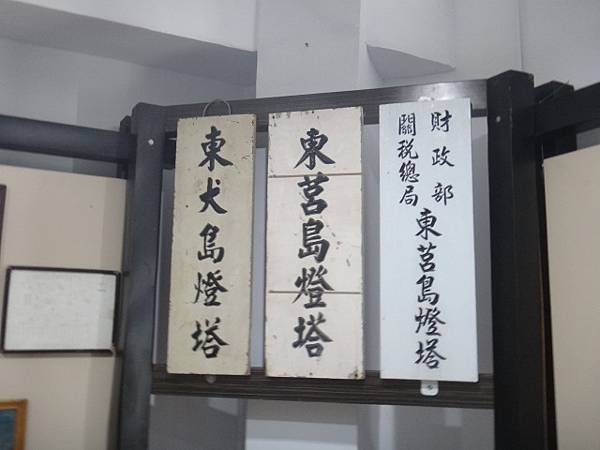 東犬島燈塔
東莒島燈塔
財政部
關税總局
東莒島燈塔